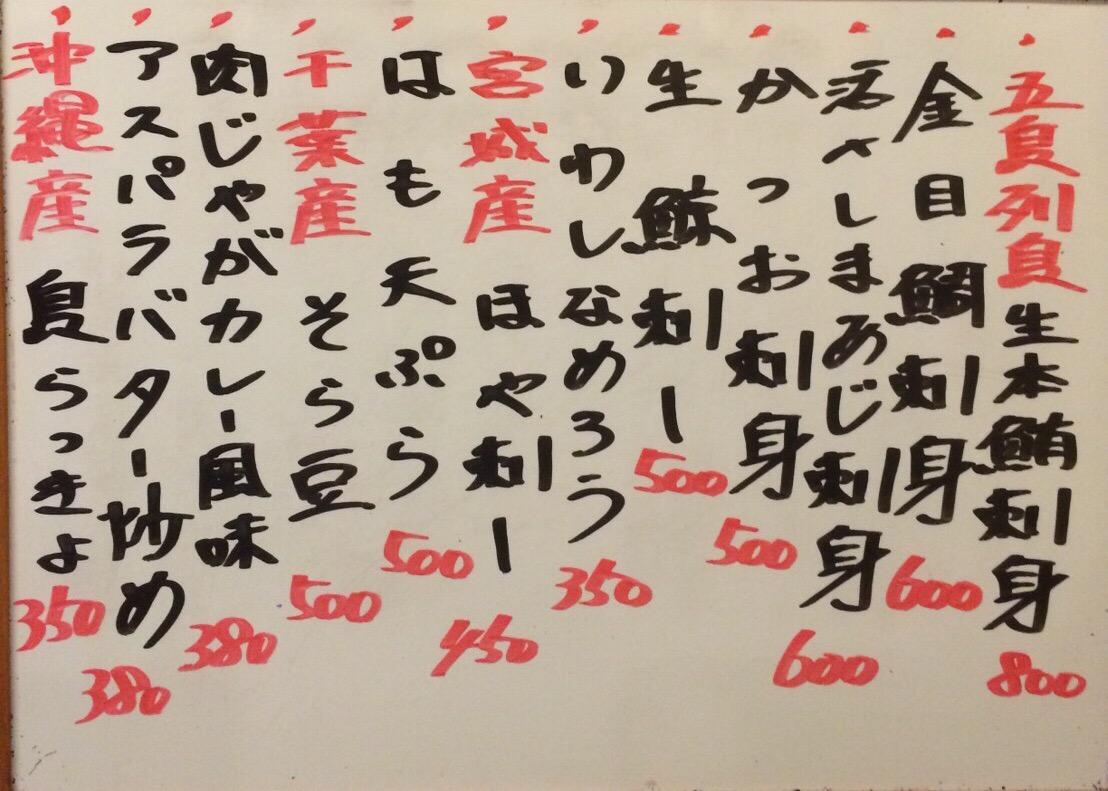 五島列島生本鮪刺身 800
金目鯛刺身 600
活〆しまあじ刺身 600
かつお刺身 500
生鯨刺し 500
いわしなめろう 350
宮城産 ほや刺し 450
はも天ぷら 500
千葉産 そら豆 500
肉じゃがカレー風味 380
アスパラバター炒め 380
沖縄産 島らっきょ 350